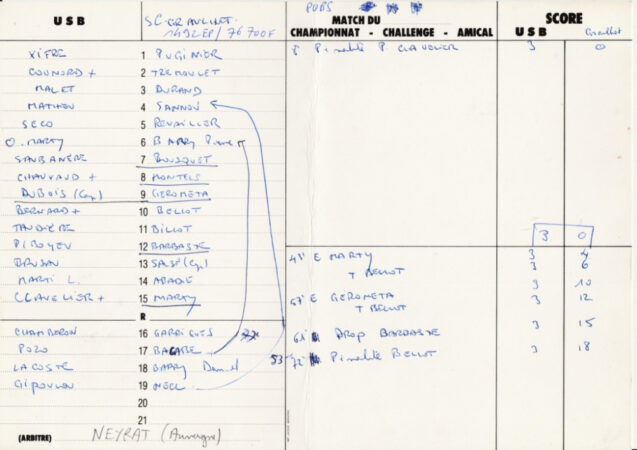 U S B
SC GRAULHET
1492 EP / 76 700 F
XIFRE 1 PUGINIER
COUNORD + 2 TREMOULET
MALET 3 DURAND
MATHIEU 4 SANNOU
SECO 5 REVAILLER
O. MARTY 6 BARRY
7 BOUSQUET
CHAUVAUD + 8 MONTELS
DUBOIS (Cap) 9 GEROMETA
BERNARD + 10 BELLOT
11 BILLOT
PIROYEU 12 BARBASTE
BRUSAN 13 SALSÉ (Cap)
MARTI L. 14 ABADIE
CLAVELIER + 15 MARTY
R
CHAMBERON 16 GARRIGUES
POZO 17 BACABE
LACOSTE 18 BARRY Daniel
GIPOULOU 19
20
21
(ARBITRE) NEYRAT (Auvergne)
PUBS
MATCH DU
CHAMPIONNAT - CHALLENGE - AMICAL
SCORE
U S B Graulhet
8' Pénalité P CLAVELIER 3 0
3 0
E MARTY 3 4
T BELLOT 3 6
3 10
E GEROMETA 3 12
T BELLOT
DROP BARBASTE 3 15
53
Pénalité BELLOT 3 18